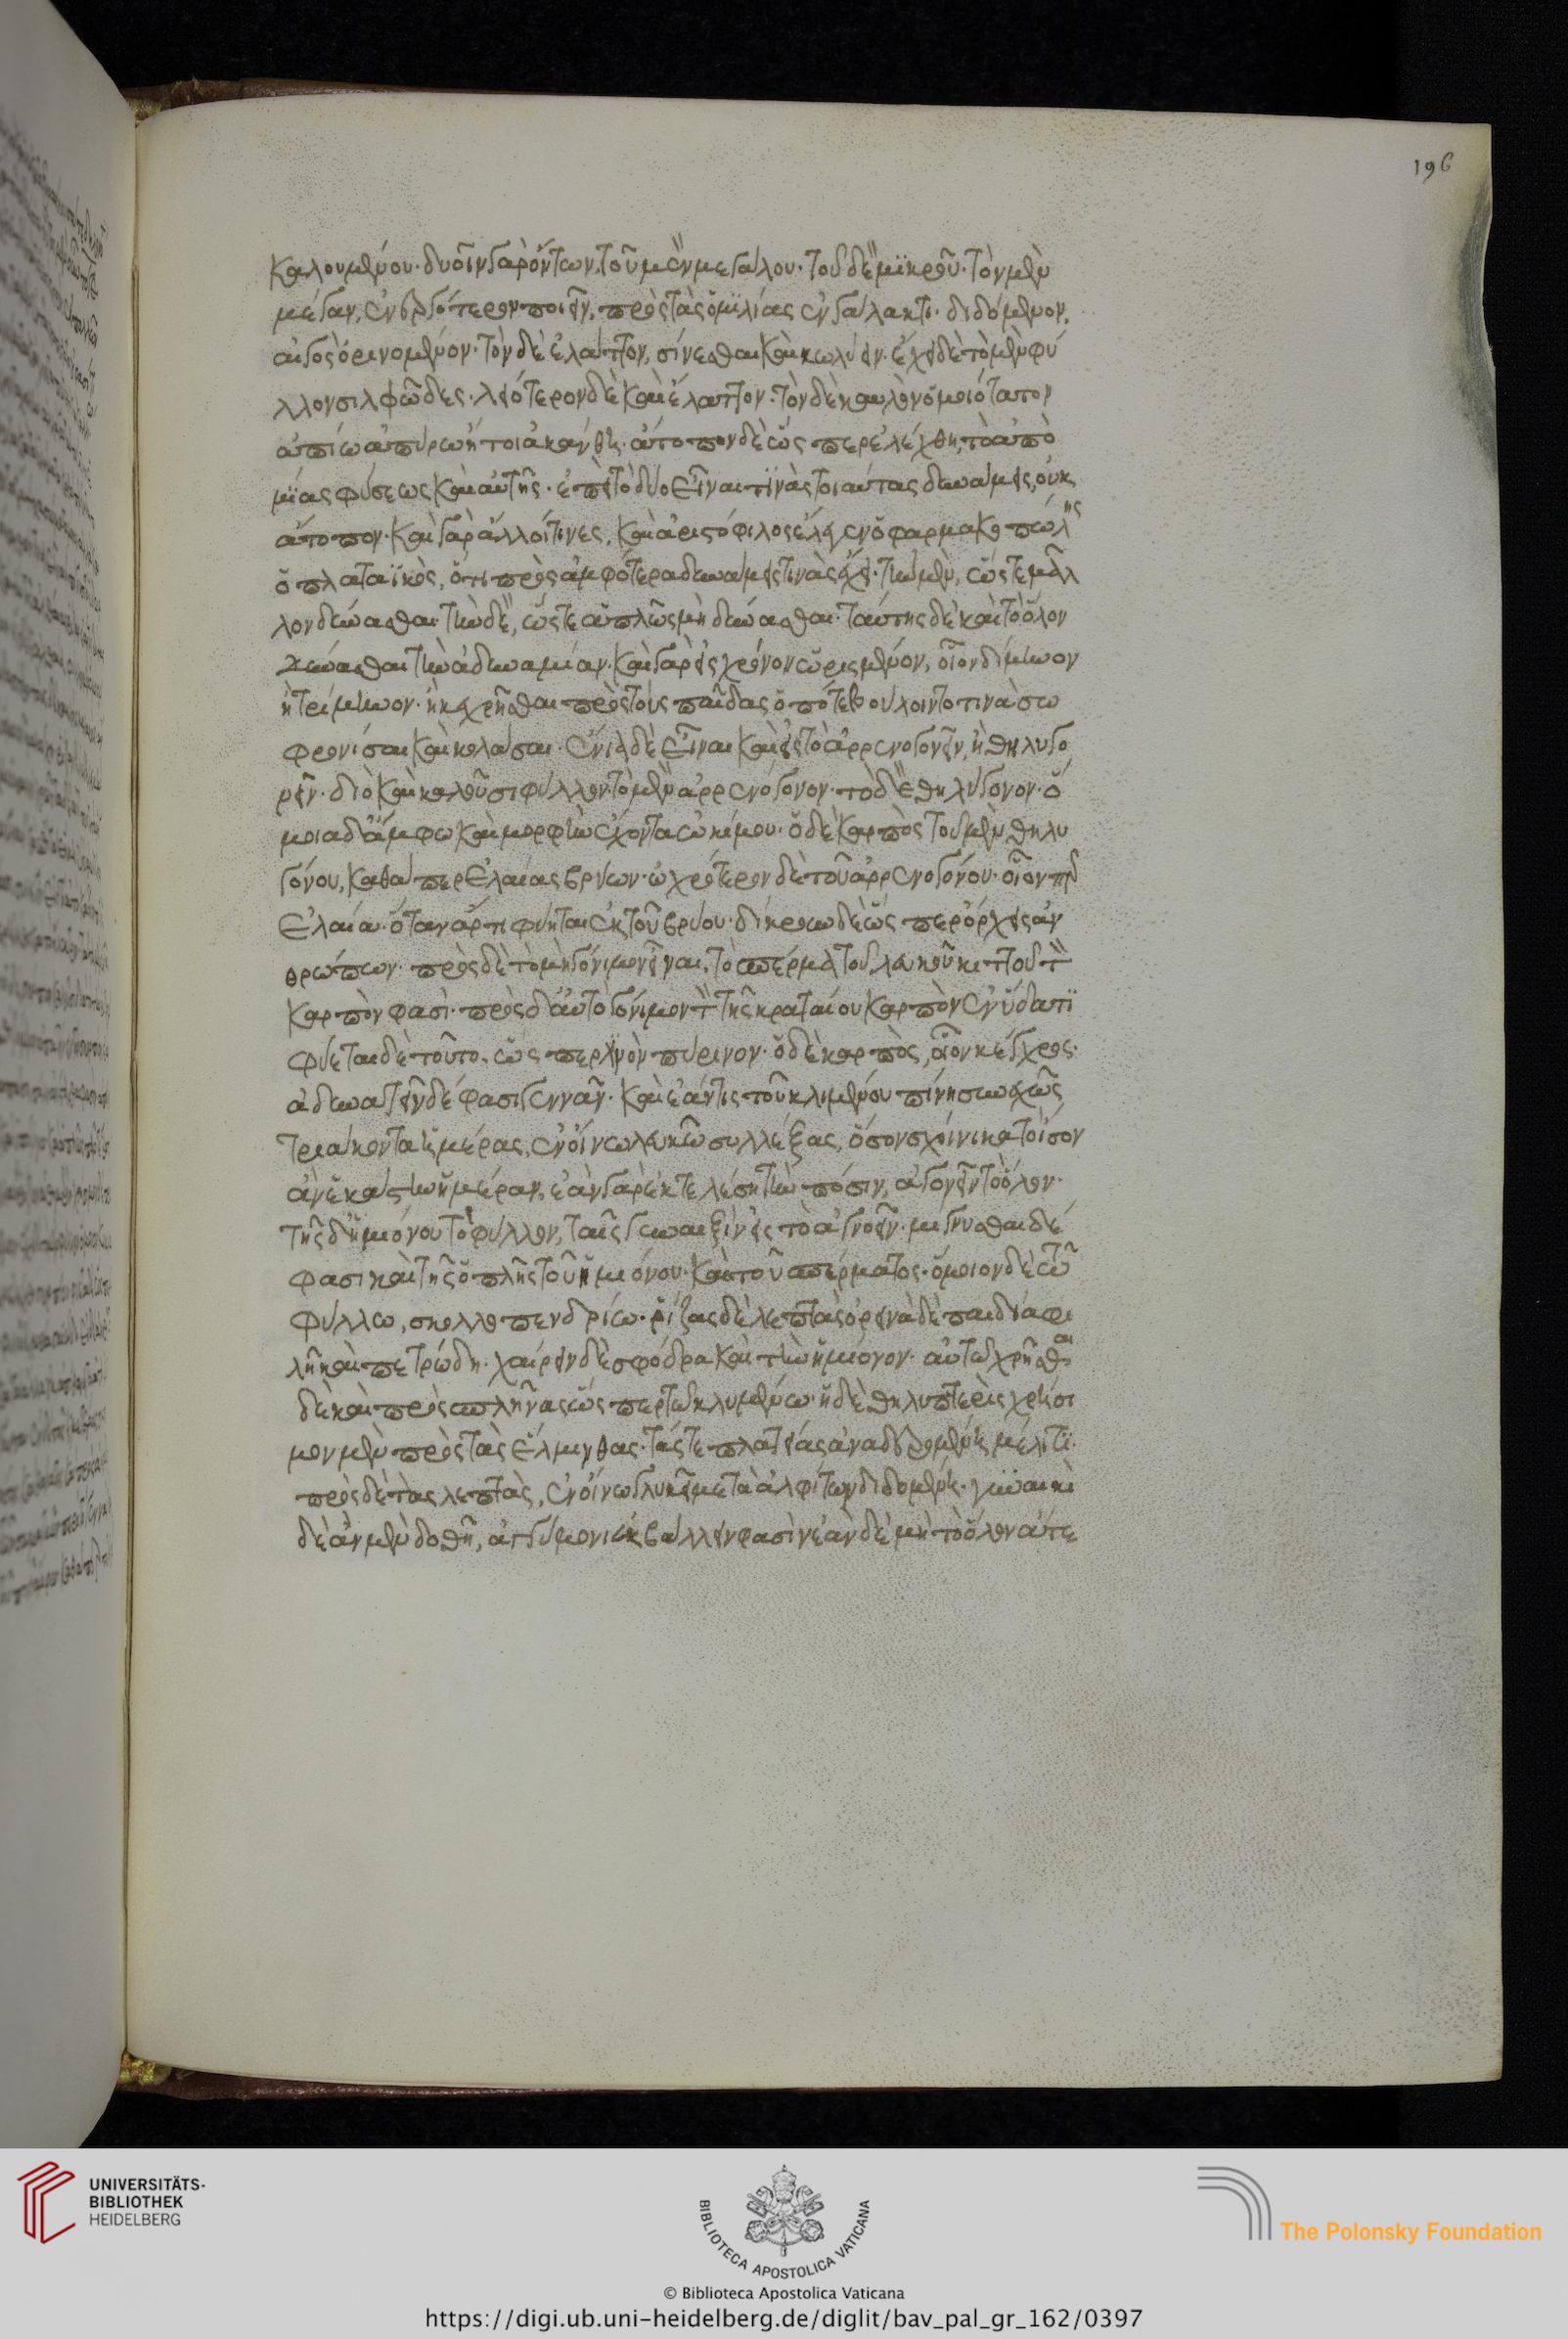 196
καλουμένου· δυοῖν γὰρ ὄντων, τοῦ μὲν μεγάλου· τοῦ δὲ μϊκροῦ· τὸν μὲν
μέγαν, ἐνεργότερον ποιεῖν, πρὸς τὰς ὁμϊλίας ἐν γάλακτι· διδόμενον,
αἰγὸς ὀρινομένου· τὸν δὲ ἐλάττον, σίνεσθαι καὶ κωλύειν· ἔχει δὲ τὸ μὲν φύ
λλον σιλφῶδες· λειότερον δὲ καὶ ἔλαττον· τὸν δὲ καυλὸν ὁμοιότατον
ἀπίω ἀπύρω ἤτοι ἀκάνθη· ἄτοπον δὲ ὥσπερ ἐλέχθη, τὸ ἀπὸ
μϊᾶς φύσεως καὶ αὐτῆς· ἐπεὶ τὸ δύο εἶναι τϊνὰς τοιαύτας δυνάμεις, οὐκ
ἄτοπον· καὶ γὰρ ἄλλοί τινες, καὶ ἀριστόφιλος ἔλεγεν ὁ φαρμακοπώλης
ὁ πλαταϊκὸς, ὅτι πρὸς ἀμφότερα δυνάμεις τινὰς ἔχει· τὴν μὲν, ὥστε μᾶλ
λον δύνασθαι τὴν δὲ, ὥστε ἁπλῶς μὴ δύνασθαι· ταύτης δὲ καὶ τὸ ὅλον
χύνασθαι τὴν ἀδυναμίαν· καὶ γὰρ εἰς χρόνον ὡρισμένον, οἷον δίμηνον
ἢ τρίμηνον· ἢ καὶ χρῆσθαι πρὸς τοὺς παῖδας ὁπότε βούλοιντο τινὰ σω
φρονίσαι καὶ κολάσαι· ἔνια δὲ εἶναι καὶ εἰς τὸ ἀρρενογονεῖν, ἢ θηλυγο
ρεῖν· διὸ καὶ καλοῦσι φύλλον τὸ μὲν ἀρρενόγονον· τὸ δὲ θηλύγονον· ὅ
μοια δ' ἄμφω καὶ μορφὴν ἔχοντα ὠκίμου· ὁ δὲ καρπὸς τοῦ μὲν θηλυ
γόνου, καθάπερ ἐλαίας βρύων· ὠχρότερον δὲ τοῦ ἀρρενογόνου· οἷον περ
ἐλαία· ὅταν ἄρτι φύηται ἐκ τοῦ βρύου· δίκροων δὲ ὥσπερ ὄρχεις ἀν
θρώπων· πρὸς δὲ τὸ μὴ γόνιμον εἶναι, τὸ σπέρμα τοῦ λευκοῦ κιττοῦ τὸν
καρπὸν φασὶ· πρὸς δ' αὐτὸ γόνιμον τὸν τῆς κραταίου καρπὸν ἐν ὕδατϊ
φύεται δὲ τοῦτο, ὥσπερ λϊνὸν πύρινον· ὁ δὲ καρπὸς, οἷον κέγχρος·
ἀδυνατεῖν δέ φασι γεννᾶν· καὶ ἐάν τις τοῦ κλιμένου πίνη συνεχῶς
τριάκοντα ἡμέρας, ἐν οἴνω λευκῶ συλλέξας, ὅσον σχίνικα τοίσον
ἀν ἑκάστην ἡμέραν, ἐὰν γὰρ ἐκτελέση τὴν πόσιν, ἀγονεῖν τὸ ὅλον·
τῆς δ' ἡμιόνου τὸ φύλλον, ταῖς γυναιξὶν εἰς τὸ ἀγνοεῖν· μίγνυσθαι δέ
φασι καὶ τῆς ὁπλῆς τοῦ ἡμιόνου· καὶ τοῦ σπέρματος· ὅμοιον δὲ τῶ
φύλλω, σκολλοπενδρίω· ῥίζας δὲ λεπτὰς ὀρεινὰ δὲ παιδία φι
λῆ καὶ πετρώδη· χαίρειν δὲ σφόδρα καὶ τὴν ἡμίονον· αὐτῶ χρῆσθαι
δὲ καὶ πρὸς σπλῆνας ὥσπερ τῶ κλυμένω· ἡ δὲ θηλυπτερὶς χρήσι
μον μὲν πρὸς τὰς ἕλμινθας· τάς τε πλατείας ἀναδευομένης μέλιτϊ·
πρὸς δὲ τὰς λεπτὰς, ἐν οἴνω γλυκεῖ μετὰ ἀλφίτων διδομένης· γυναικὶ
δὲ ἀν μὲν δοθῆ, ἀγγύμονι ἐκβάλλειν φασὶν ἐὰν δὲ μὴ τὸ ὅλον ἄτε
UNIVERSITÄTS-
BIBLIOTHEK
HEIDELBERG
BIBLIOTECA APOSTOLICA VATICANA
The Polonsky Foundation
© Biblioteca Apostolica Vaticana
https://digi.ub.uni-heidelberg.de/diglit/bav_pal_gr_162/0397